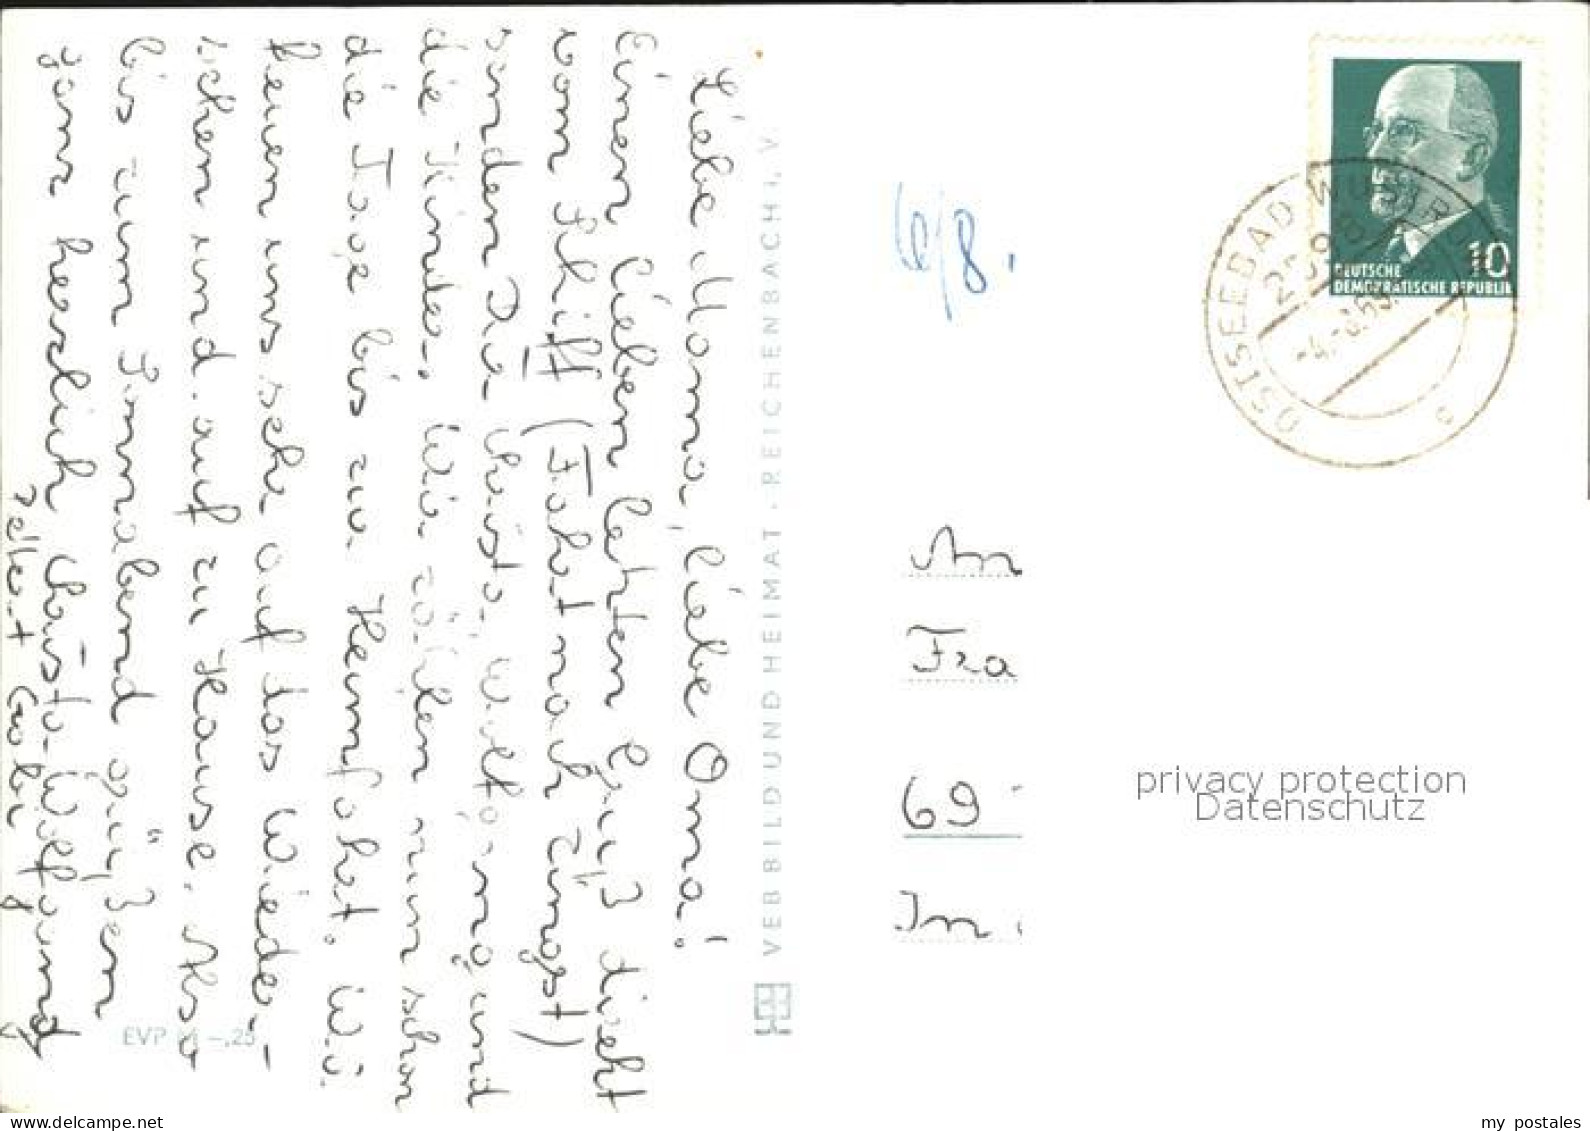 Liebe Mama, liebe Oma!
Einen lieben letzten Gruß direkt
vom Schiff (Fahrt nach Zingst)
senden Dir Christa, Wolfgang und
die Kinder. Wir zählen nun schon
die Tage bis zur Heimfahrt. Wir
freuen uns sehr auf das Wieder-
sehen und auf zu Hause. Also
bis zum Sonnabend grüßen
ganz herzlich Christa, Wolfgang
VEB BILD UND HEIMAT · REICHENBACH i. V.
EVP M -,25
6/8.
An
Fra
69
In
DEUTSCHE
DEMOKRATISCHE REPUBLIK
10
OSTSEEBAD WUSTROW
privacy protection
Datenschutz
www.delcampe.net
my_postales